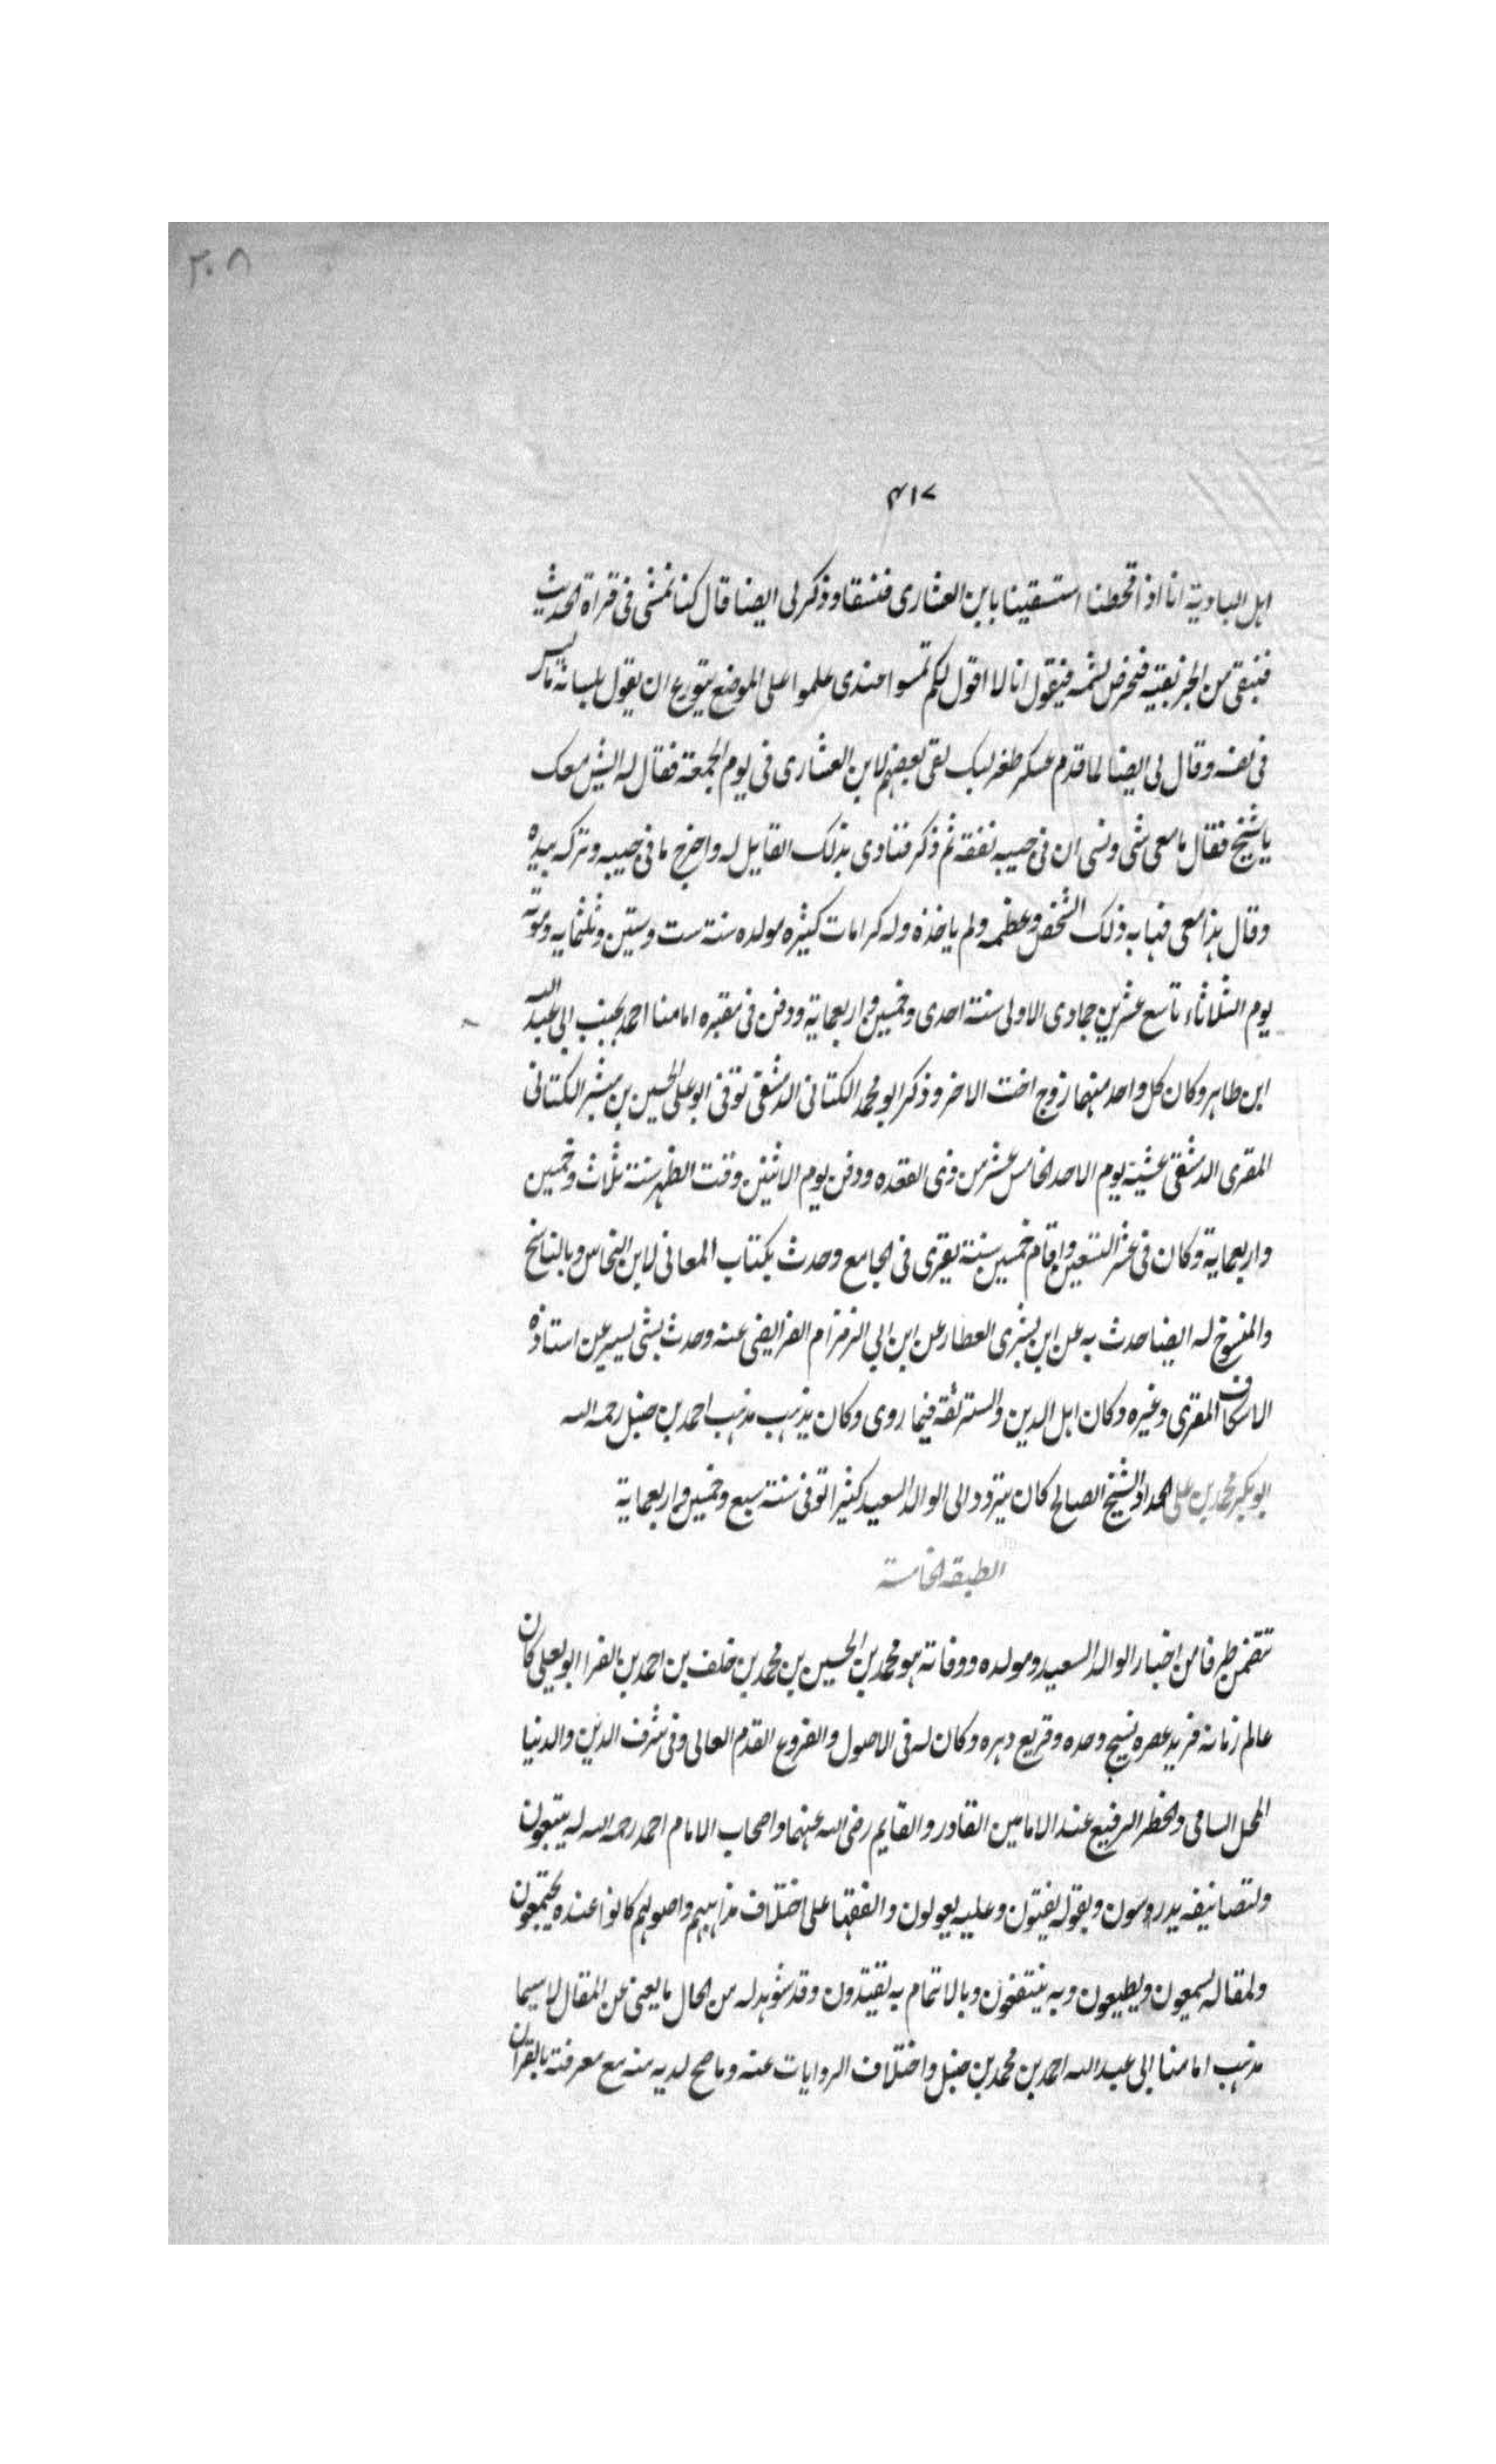 ٢٠٨
٤١٧
اهل البادية انا اذا قحطنا استسقينا بابن العشارى فنسقا وذكر لى ايضا قال كنا نمشى فى قراة الحديث
فيقول انا لا اقول لكم علموا على الموضع يتورع ان يقول بلسانه ما ليس
فى نفسه وقال لى ايضا لما قدم عسكر طغرلبك لقى بعضهم لابن العشارى فى يوم الجمعة فقال له ايش معك
يا شيخ فقال ما معى شى ونسى ان فى جيبه نفقة ثم ذكر فنادى بذلك القايل له واخرج ما فى جيبه وتركه بيده
وقال هذا معى فهابه ذلك الشخص وعظمه ولم ياخذه وله كرامات كثيره مولده سنة ست وستين وثلثمايه وموته
يوم الثلاثاء تاسع عشرين جمادى الاولى سنة احدى وخمسين واربعماية ودفن فى مقبره امامنا احمد بجنب ابى عبد الله
ابن طاهر وكان كل واحد منهما زوج اخت الاخر وذكر ابو محمد الكتانى الدمشقى توفى ابو على الحسين بن مبشر الكتانى
المقرى الدمشقى عشية يوم الاحد الخامس عشر من ذى القعده ودفن يوم الاثنين وقت الظهر سنة ثلاث وخمسين
واربعماية وكان فى عشر التسعين واقام خمسين سنة يقرى فى الجامع وحدث بكتاب المعانى لابن النحاس وبالناسخ
والمنسوخ له ايضا حدث به عن ابن بشرى العطار عن ابن ابى الزمزام الفرايضى عنه وحدث بشى يسير عن استاذه
الاسكاف المقرى وغيره وكان اهل الدين والستر ثقة فيما روى وكان يذهب مذهب احمد بن حنبل رحمه الله
ابو بكر محمد بن على الحداد الشيخ الصالح كان يتردد الى الوالد السعيد كثيرا توفى سنة سبع وخمسين واربعماية
الطبقة الخامسة
تتضمن طرفا من اخبار الوالد السعيد ومولده ووفاته هو محمد بن الحسين بن محمد بن خلف بن احمد بن الفرا ابو يعلى كان
عالم زمانه فريد عصره نسيج وحده وقريع دهره وكان له فى الاصول والفروع القدم العالى وفى شرف الدين والدنيا
المحل السامى والخطر الرفيع عند الامامين القادر والقايم رضى الله عنهما واصحاب الامام احمد رحمه الله له يتبعون
ولتصانيفه يدرسون وبقوله يفتون وعليه يعولون والفقها على اختلاف مذاهبهم واصولهم كانوا عنده يجتمعون
ولمقاله يسمعون ويطيعون وبه ينتفعون وبالائتمام به يقتدون وقد شوهد له من الحال ما يغنى عن المقال لا سيما
مذهب امامنا ابى عبد الله احمد بن محمد بن حنبل واختلاف الروايات عنه وما صح لديه منه مع معرفته بالقران